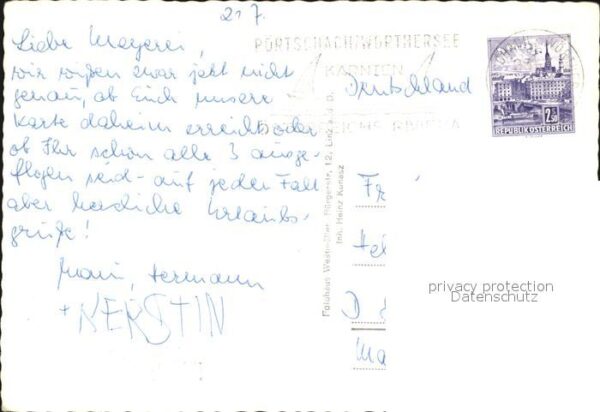 21 7.
Liebe Mayerei,
wir wissen zwar jetzt nicht
genau, ob Euch unsere
Karte daheim erreicht oder
ob Ihr schon alle 3 ausge-
flogen seid - auf jeden Fall
aber herzliche Urlaubs-
grüße!
Hermann
+ KERSTIN
PÖRTSCHACH/WÖRTHERSEE
KÄRNTEN
RIVIERA
Deutschland
2.50
REPUBLIK ÖSTERREICH
Bürgerstr. 12, Linz a. d. D.
Inh. Heinz Kunasz
Fr
D
Ma
privacy protection
Datenschutz